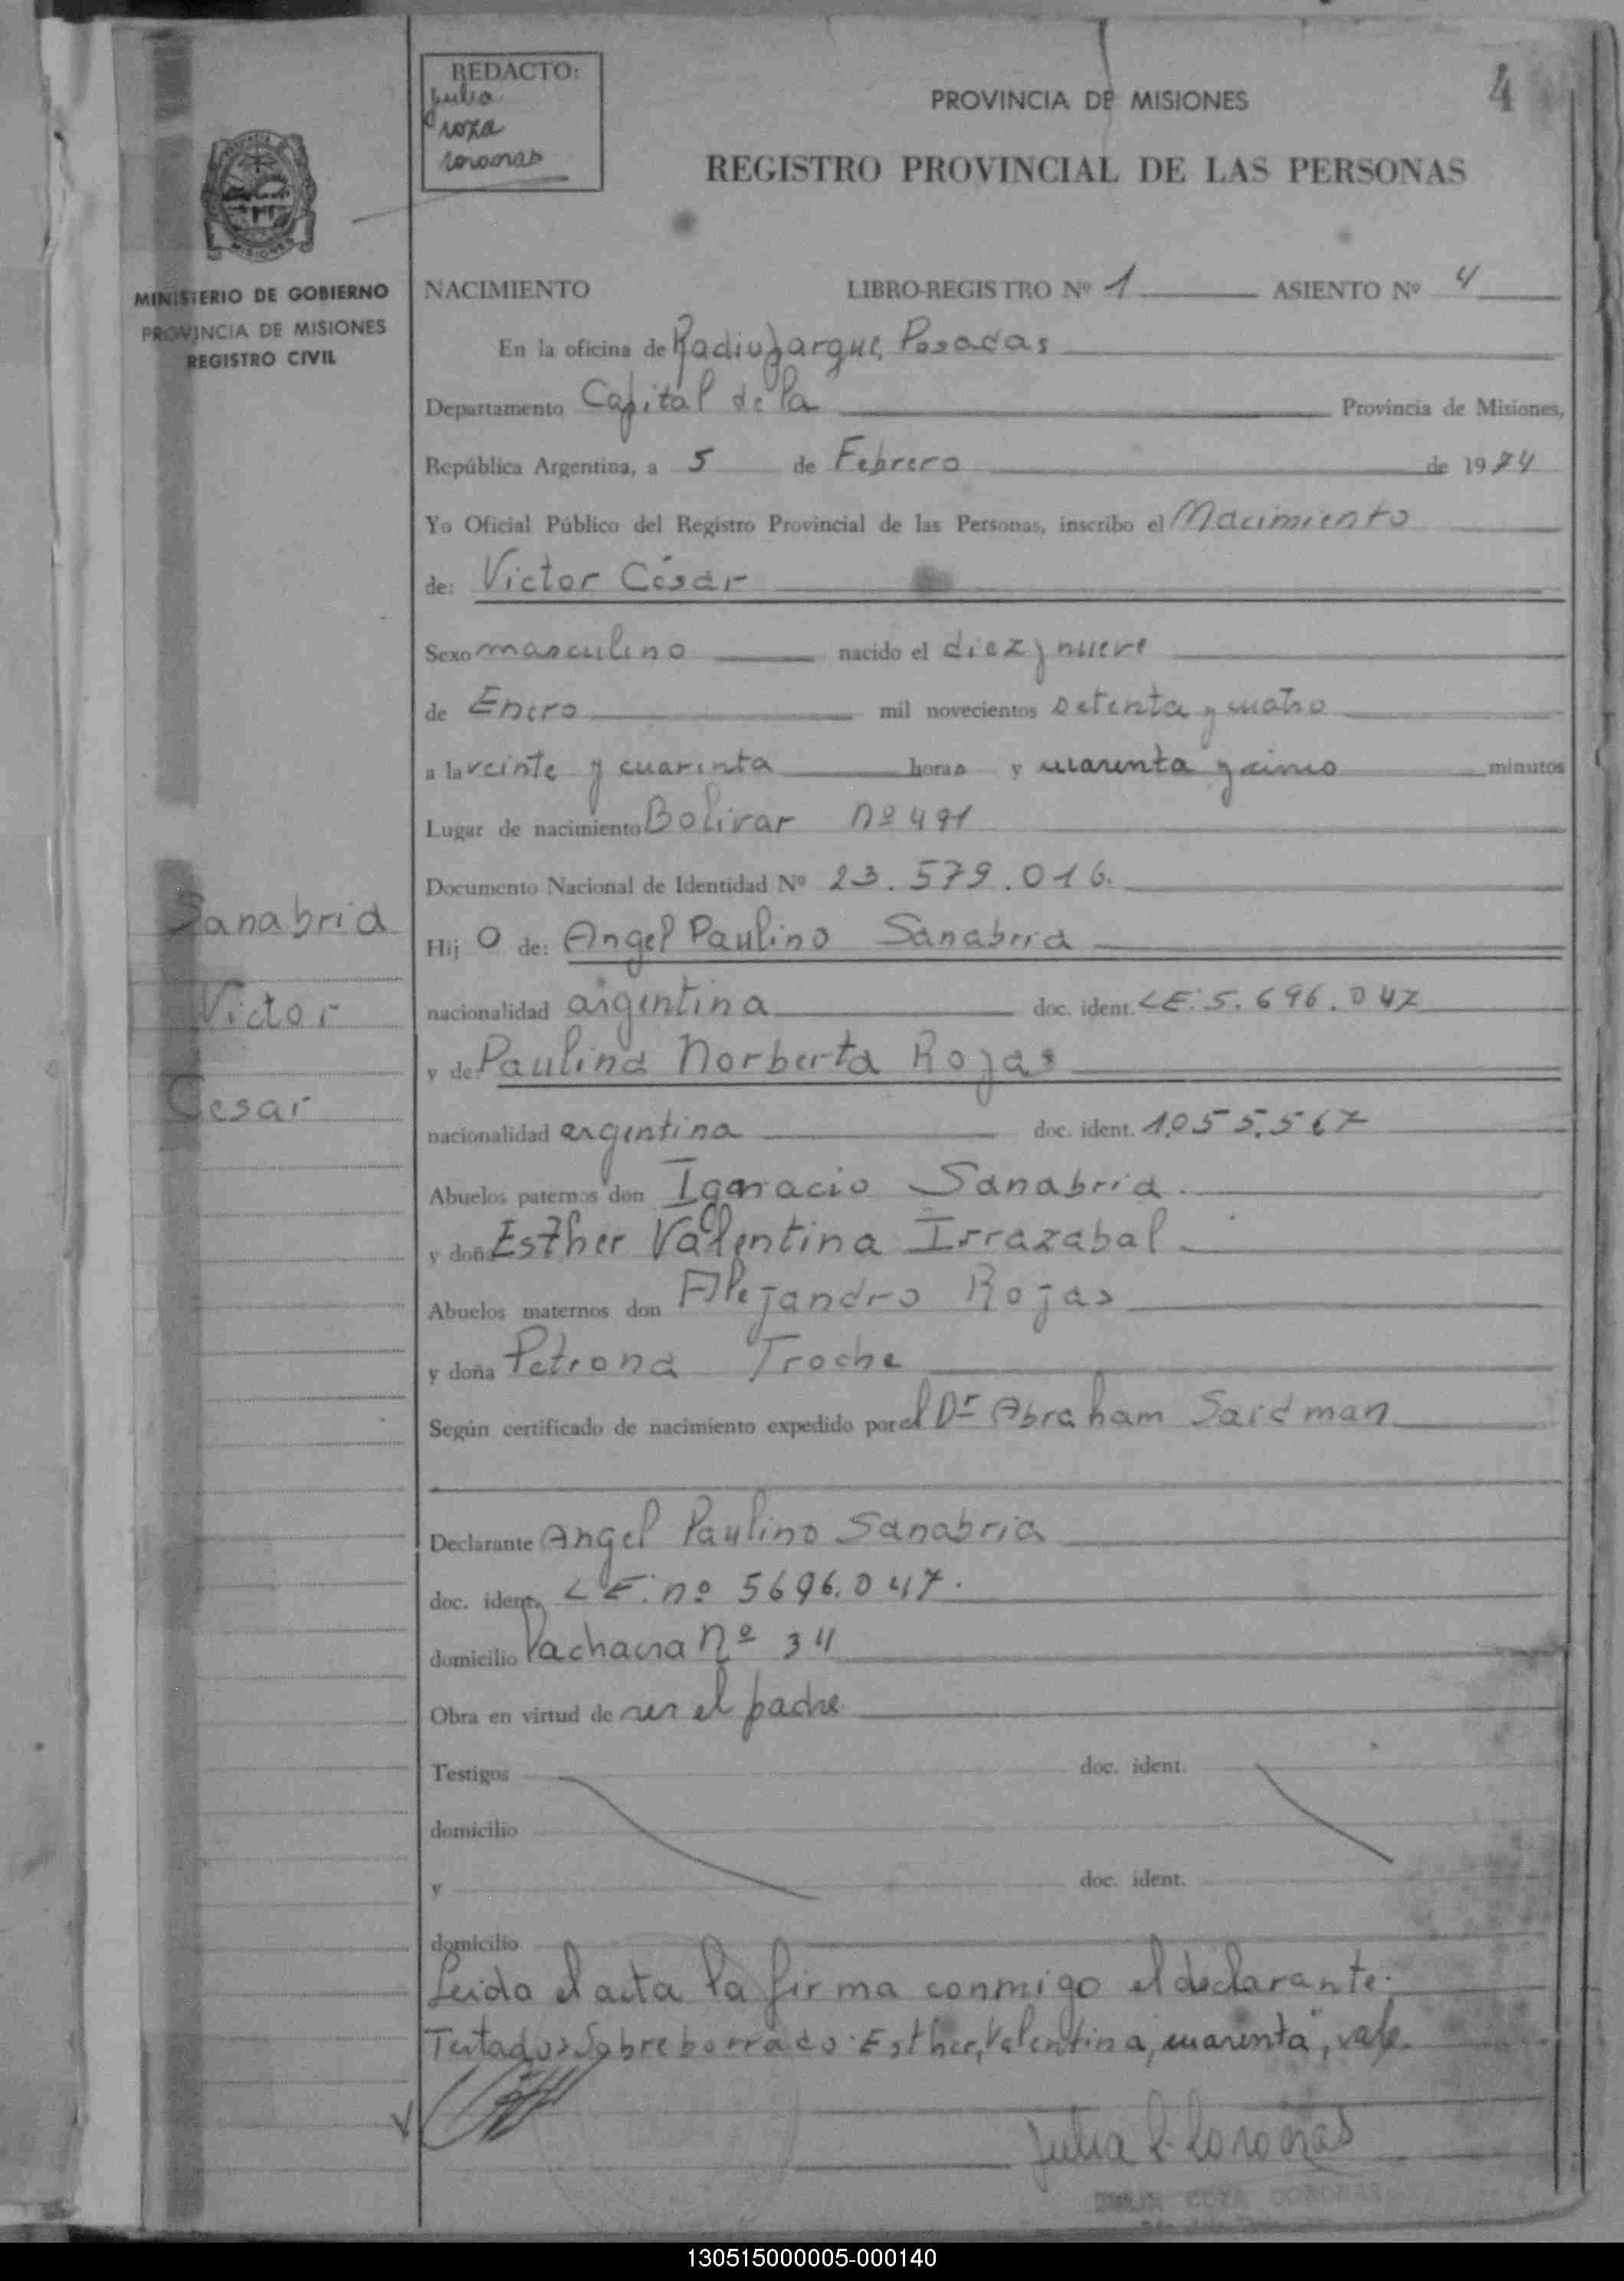 REDACTO:
Julia
roza
coronas
4
PROVINCIA DE MISIONES
REGISTRO PROVINCIAL DE LAS PERSONAS
MISIONES
MINISTERIO DE GOBIERNO
PROVINCIA DE MISIONES
REGISTRO CIVIL
NACIMIENTO LIBRO-REGISTRO Nº 1 ASIENTO Nº 4
En la oficina de Posadas
Departamento Capital de la Provincia de Misiones,
República Argentina, a 5 de Febrero de 1974
Yo Oficial Público del Registro Provincial de las Personas, inscribo el Nacimiento
de: Victor César
Sexo masculino nacido el diez y nueve
de Enero mil novecientos setenta y cuatro
a la veinte y cuarenta horas y cuarenta y cinco minutos
Lugar de nacimiento Bolivar nº 491
Documento Nacional de Identidad Nº 23.579.016.
Sanabria
Hij o de: Angel Paulino Sanabria
nacionalidad argentina doc. ident. LE. 5.696.047
Victor
y de: Paulina Norberta Rojas
Cesar
nacionalidad argentina doc. ident. 1.055.567
Abuelos paternos don Ignacio Sanabria.
y doña Esther Valentina Irrazabal
Abuelos maternos don Alejandro Rojas
y doña Petrona Troche
Según certificado de nacimiento expedido por el Dr Abraham Saidman
Declarante Angel Paulino Sanabria
doc. ident. LE. nº 5696.047.
domicilio nº 34
Obra en virtud de ser el padre
Testigos doc. ident.
domicilio
y doc. ident.
domicilio
Leida el acta la firma conmigo el declarante.
Sobreborrado: Esther, Valentina, "cuarenta", vale.
Julia R. Coronas
130515000005-000140